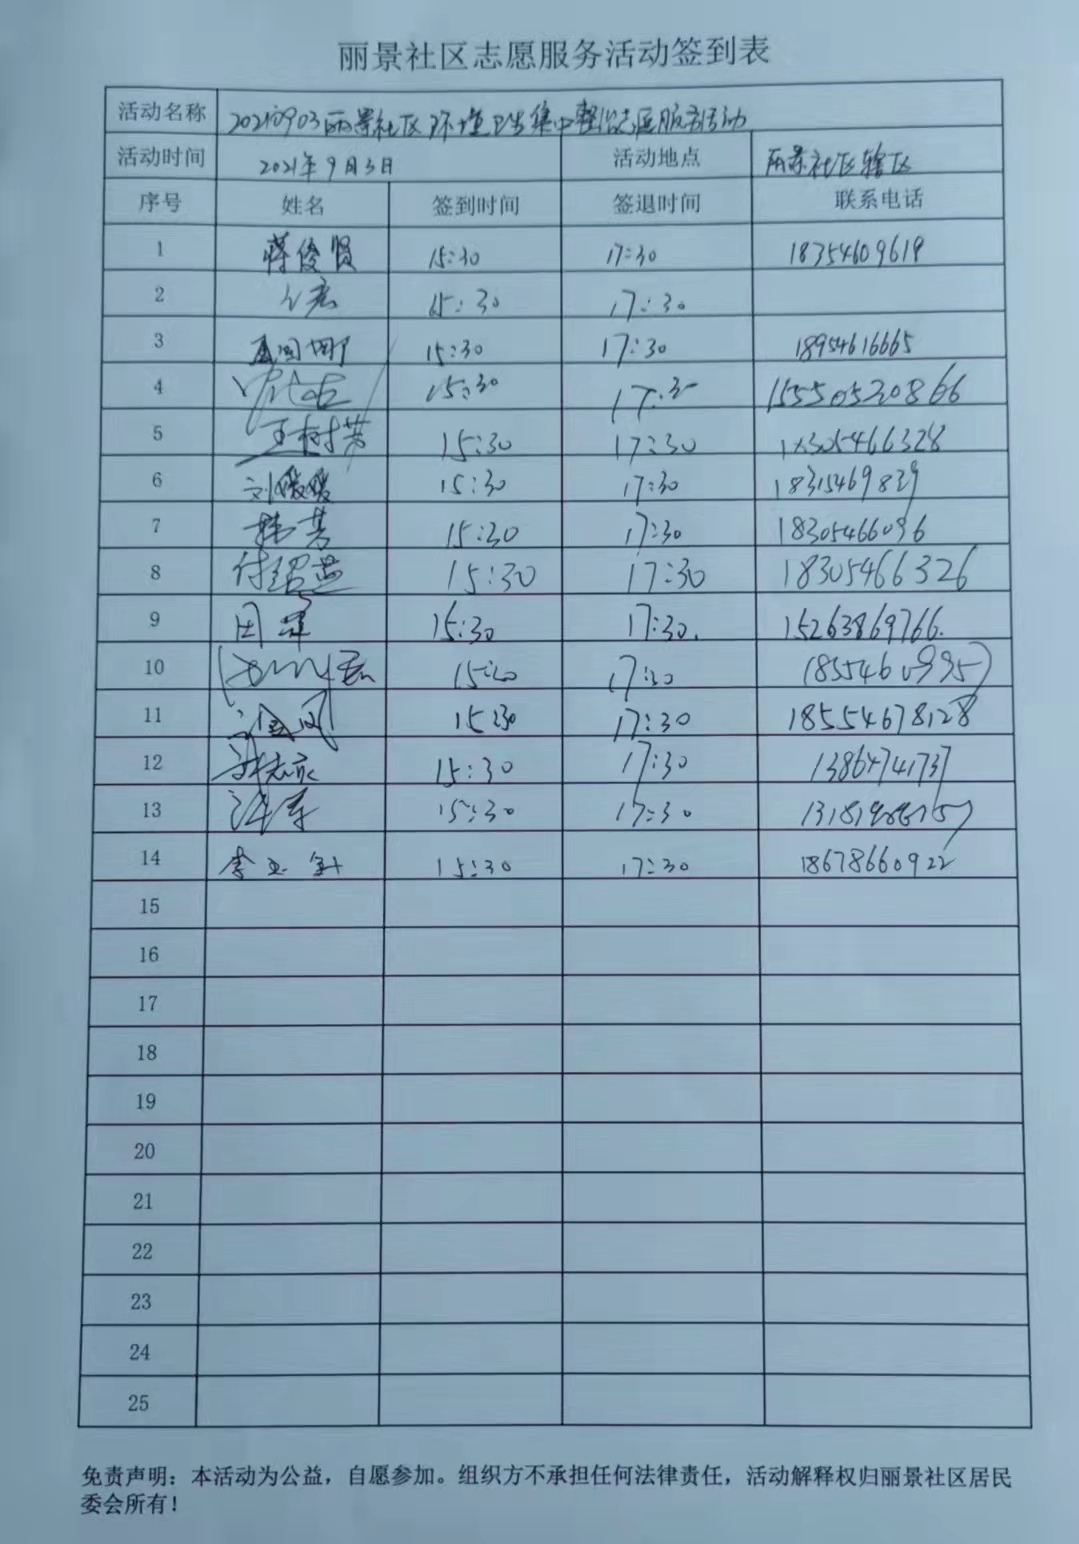 丽景社区志愿服务活动签到表
活动名称 20210903丽景社区环境卫生集中整治志愿服务活动
活动时间 2021年9月3日 活动地点 丽景社区辖区
序号 姓名 签到时间 签退时间 联系电话
1 蒋俊贤 15:30 17:30 18354609619
2 15:30 17:30
3 15:30 17:30 18954616665
4 15:30 17:30 15550520866
5 王树芳 15:30 17:30 18305466328
6 刘媛媛 15:30 17:30 18315469839
7 15:30 17:30 18305466096
8 付绍燕 15:30 17:30 18305466326
9 田军 15:30 17:30. 15263869766.
10 15:30 17:30
11 15:30 17:30 18554678128
12 15:30 17:30 13864741737
13 15:30 17:30
14 15:30 17:30 18678660922
15
16
17
18
19
20
21
22
23
24
25
免责声明：本活动为公益，自愿参加。组织方不承担任何法律责任，活动解释权归丽景社区居民
委会所有！